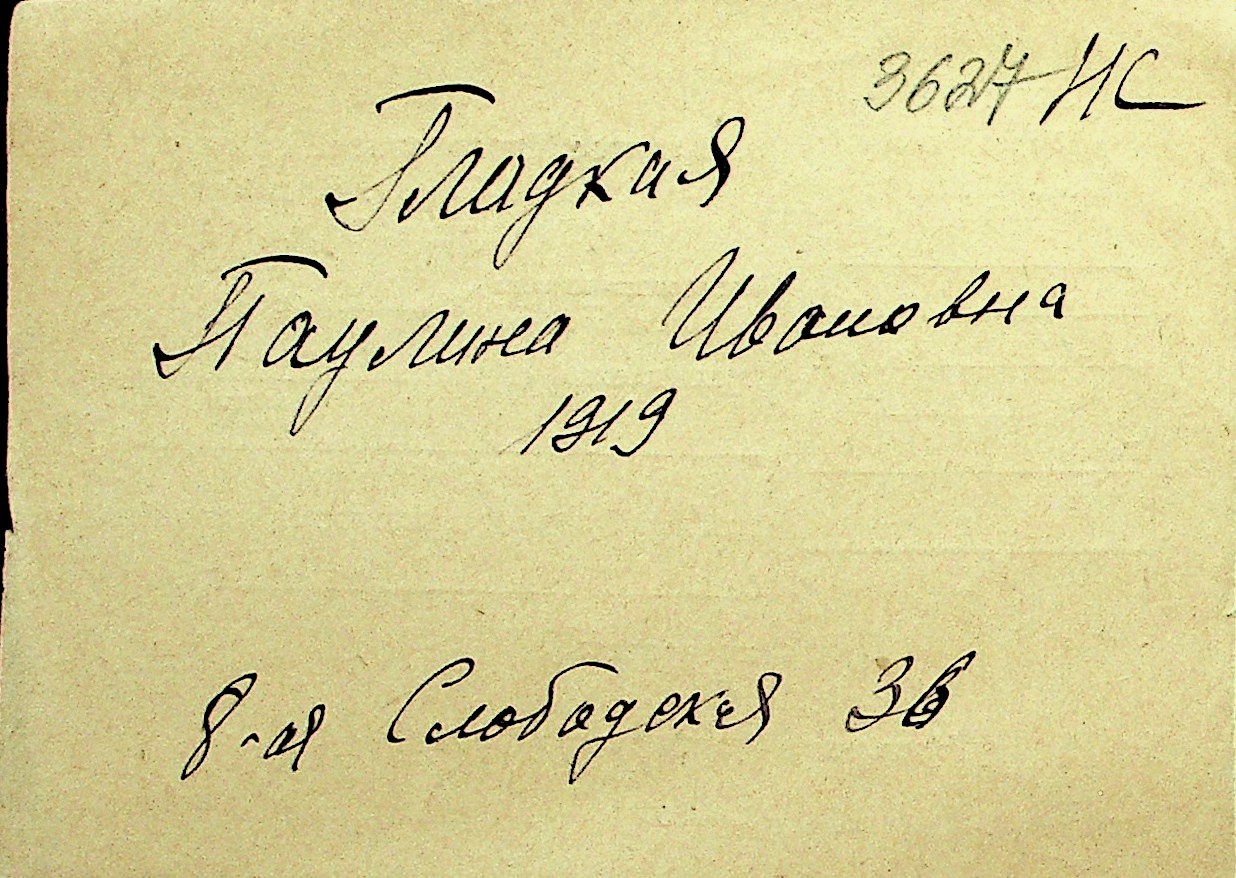 3627 НС
Гладкая
Паулина Ивановна
1919
8-ая Слободская 36